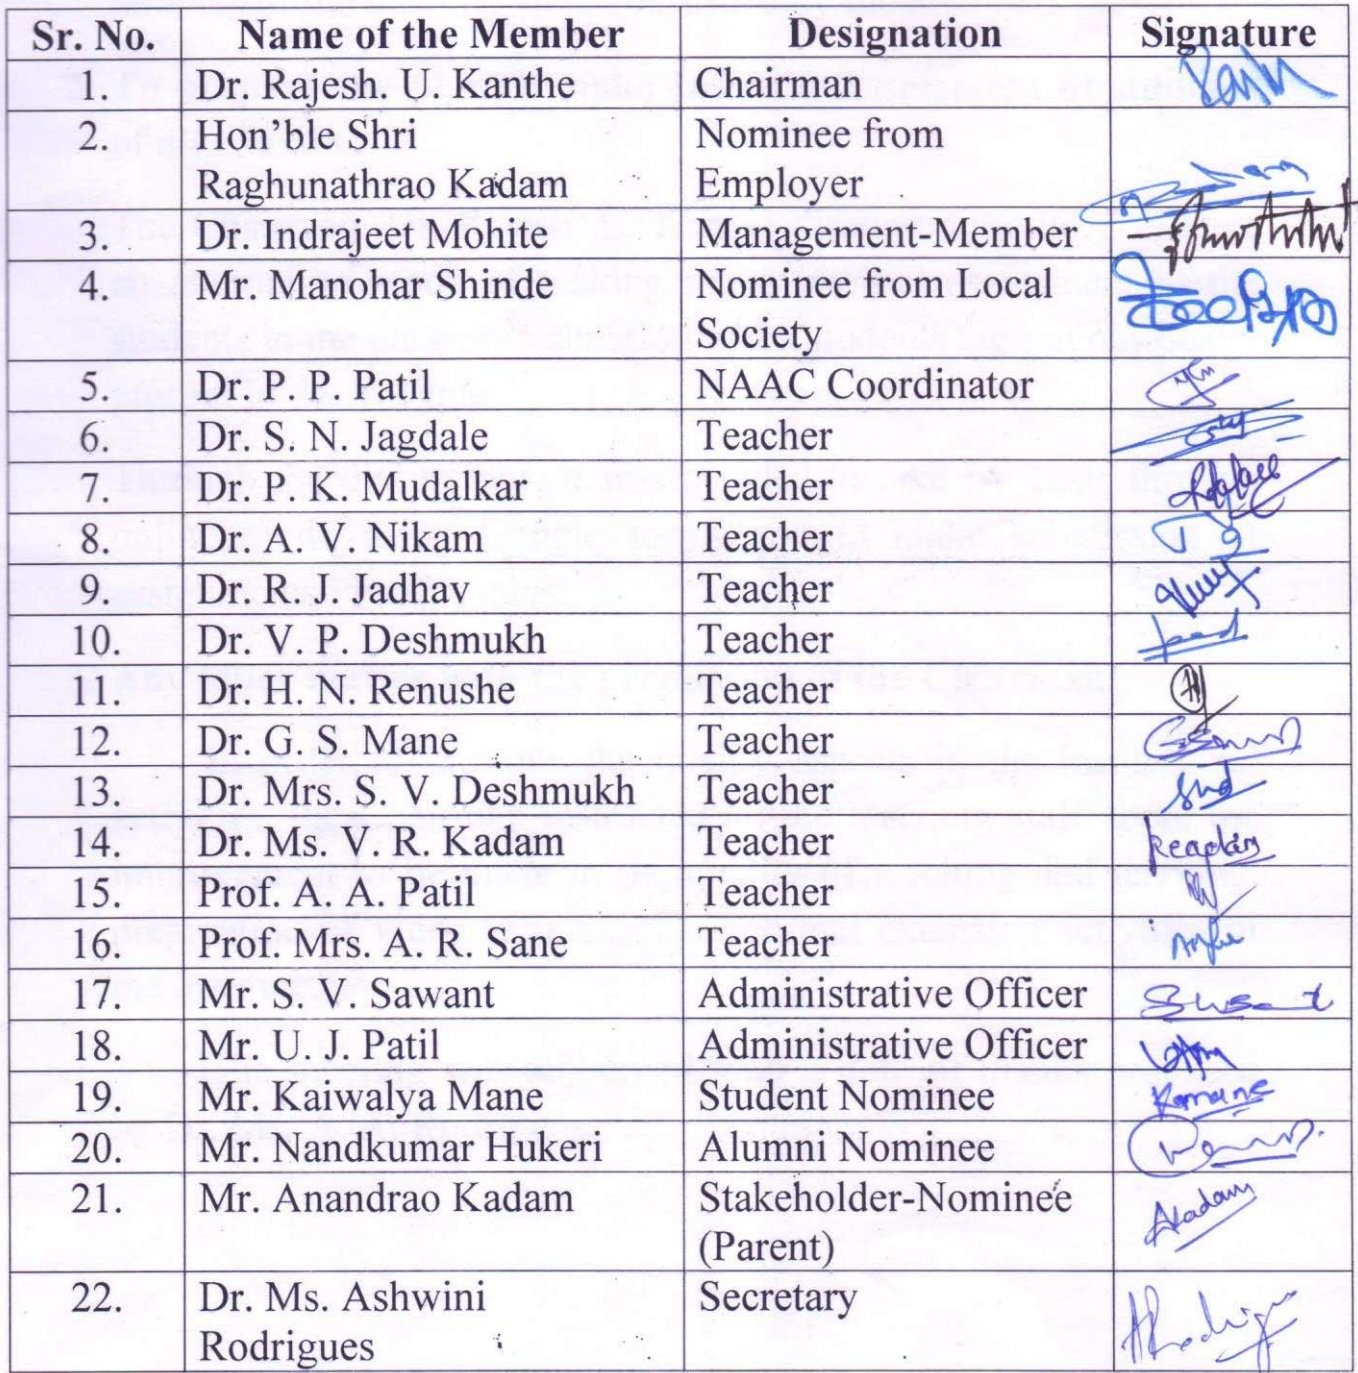 Sr. No. Name of the Member Designation Signature
1. Dr. Rajesh. U. Kanthe Chairman
2. Hon'ble Shri Nominee from
Raghunathrao Kadam Employer
3. Dr. Indrajeet Mohite Management-Member
4. Mr. Manohar Shinde Nominee from Local
Society
5. Dr. P. P. Patil NAAC Coordinator
6. Dr. S. N. Jagdale Teacher
7. Dr. P. K. Mudalkar Teacher
8. Dr. A. V. Nikam Teacher
9. Dr. R. J. Jadhav Teacher
10. Dr. V. P. Deshmukh Teacher
11. Dr. H. N. Renushe Teacher
12. Dr. G. S. Mane Teacher
13. Dr. Mrs. S. V. Deshmukh Teacher
14. Dr. Ms. V. R. Kadam Teacher
15. Prof. A. A. Patil Teacher
16. Prof. Mrs. A. R. Sane Teacher
17. Mr. S. V. Sawant Administrative Officer
18. Mr. U. J. Patil Administrative Officer
19. Mr. Kaiwalya Mane Student Nominee
20. Mr. Nandkumar Hukeri Alumni Nominee
21. Mr. Anandrao Kadam Stakeholder-Nominee AKadam
(Parent)
22. Dr. Ms. Ashwini Secretary
Rodrigues